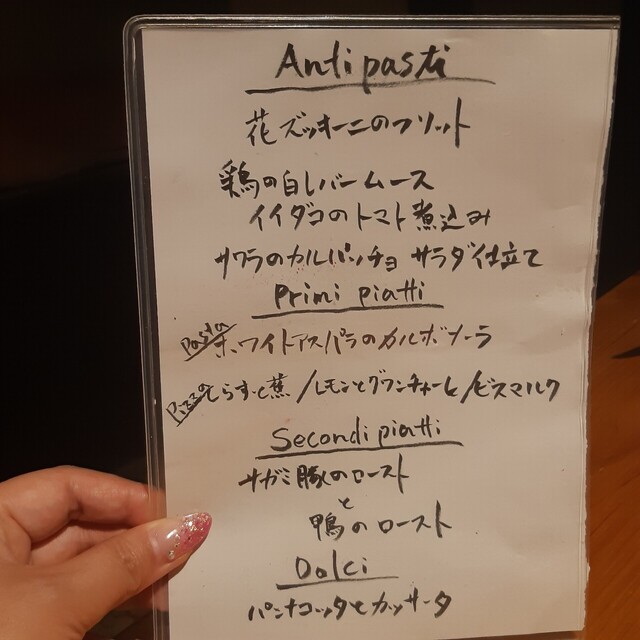 Antipasti
花ズッキーニのフリット
鶏の白レバームース
イイダコのトマト煮込み
サワラのカルパッチョ サラダ仕立て
Primi piatti
Pasta ホワイトアスパラのカルボナーラ
Pizza しらすと蕉/レモンとグアンチャーレ/ビスマルク
Secondi piatti
サガミ豚のロースト
と
鴨のロースト
Dolci
パンナコッタとカッサータ